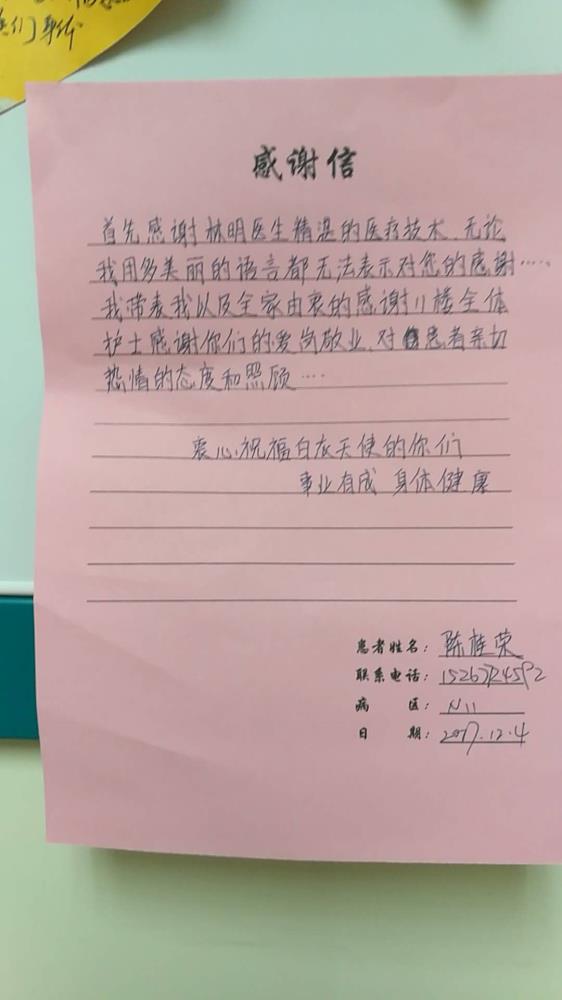 们事作
感谢信
首先感谢林明医生精湛的医疗技术、无论
我用多美丽的语言都无法表示对您的感谢……
我带表我以及全家由衷的感谢11楼全体
护士感谢你们的爱岗敬业、对患者亲切
热情的态度和照顾……
衷心祝福白衣天使的你们
事业有成 身体健康
患者姓名：陈桂荣
联系电话：
病 区：N11
日 期：2017.12.4